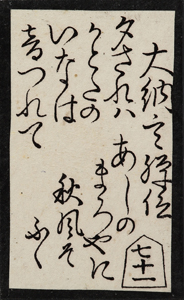 大納言經信
夕されハ
かとたの
いなは
音つれて
あしの
まろやに
秋風そ
ふく
七十一